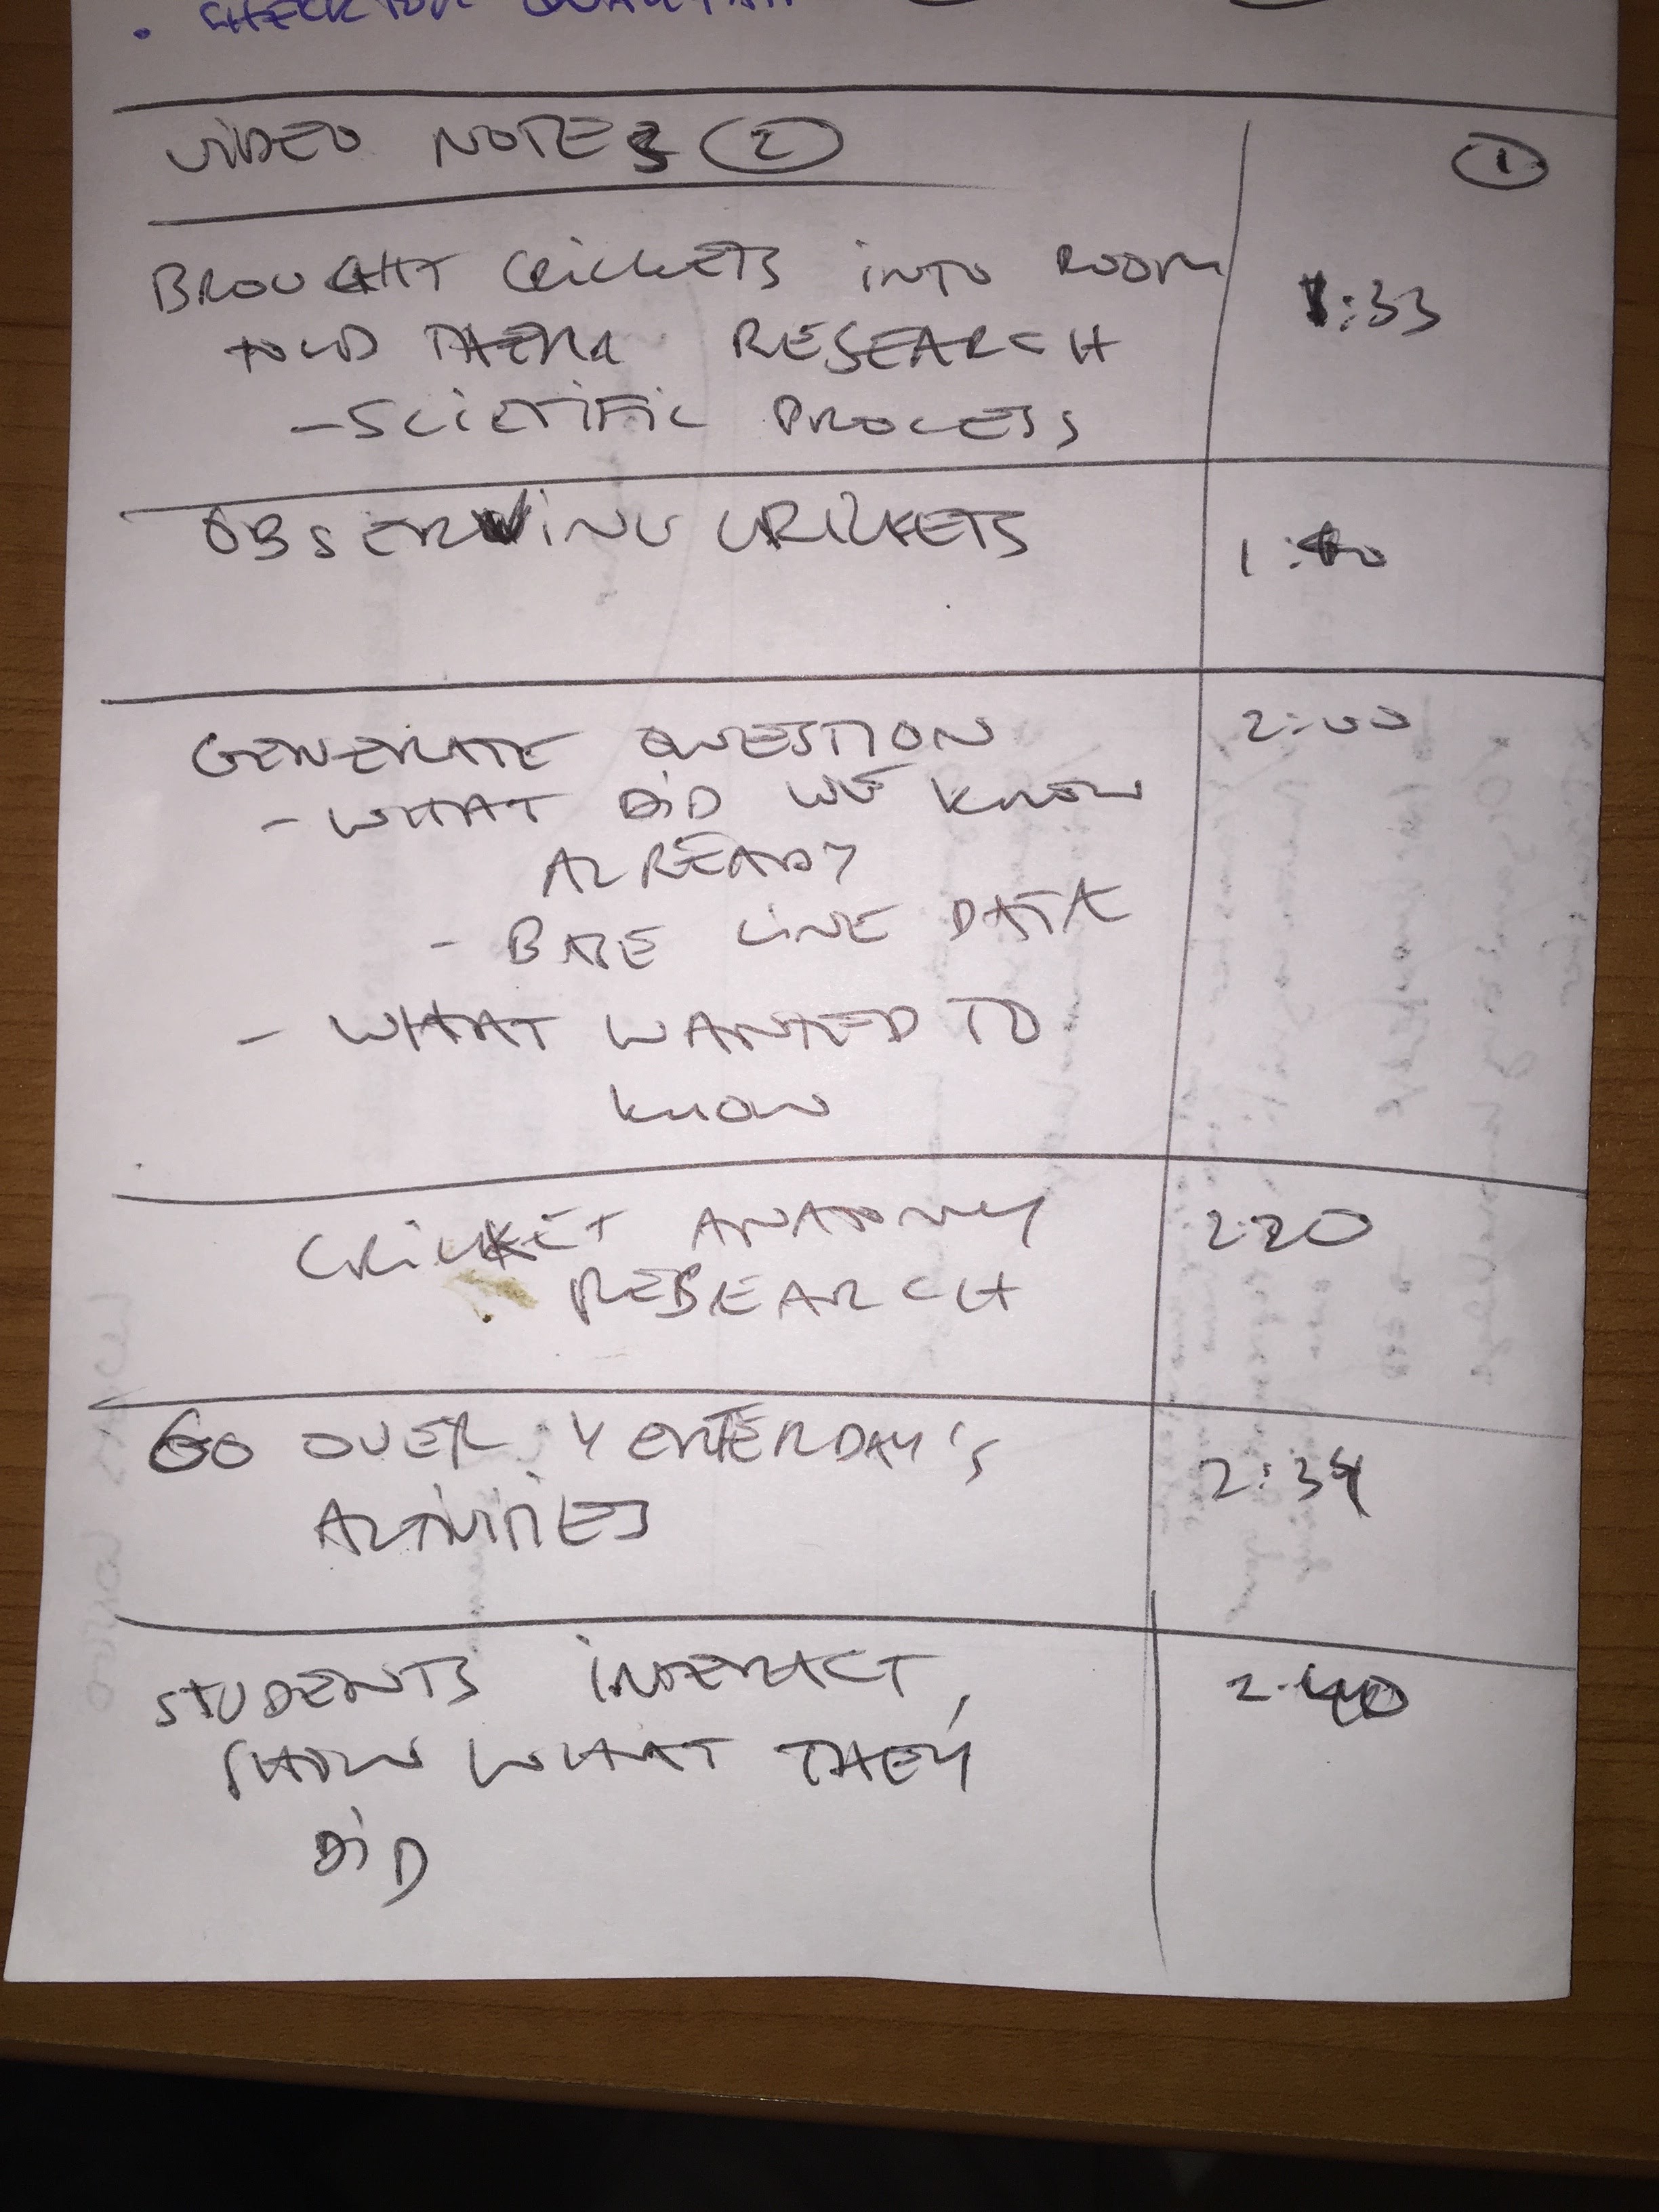 VIDEO NOTES 2 1
BROUGHT CRICKETS INTO ROOM 1:33
TOLD THEM RESEARCH
- SCIETIFIC PROCESS
OBSERVING CRICKETS 1:40
GENERATE QUESTION 2:00
- WHAT DID WE KNOW
ALREADY
- BASE LINE DATA
- WHAT WANTED TO
KNOW
CRICKET ANATOMY 2:20
RESEARCH
GO OVER YESTERDAY'S 2:34
ACTIVITIES
STUDENTS INTERACT, 2:40
SHOW WHAT THEY
DID